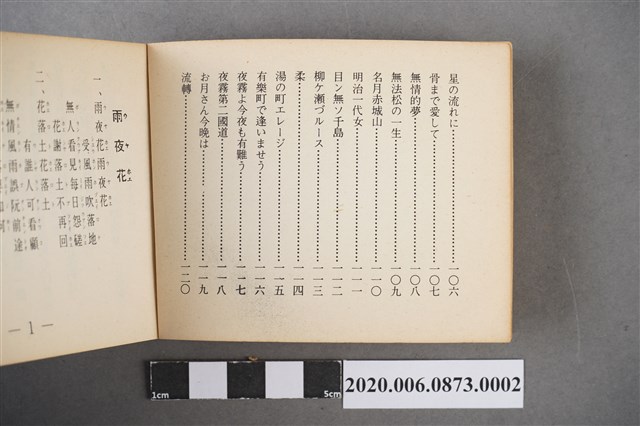 星の流れに……………一〇六
骨まで愛して……………一〇七
無情的夢……………一〇八
無法松の一生……………一〇九
名月赤城山……………一一〇
明治一代女……………一一一
目ン無ソ千島……………一一二
柳ケ瀬づルース……………一一三
柔……………一一四
湯の町エレージ……………一一五
有樂町で逢いませう……………一一六
夜霧よ今夜も有難う……………一一七
夜霧第二國道……………一一八
お月さん今晩は……………一一九
流轉……………一二〇
雨夜花
一、雨夜花雨夜花
受風雨吹落地
無人看見每日怨磋
花謝落土不再回
二、花落土花落土
有誰人可看顧
無情風雨誤阮前途
— 1 —
1cm
5cm
2020.006.0873.0002